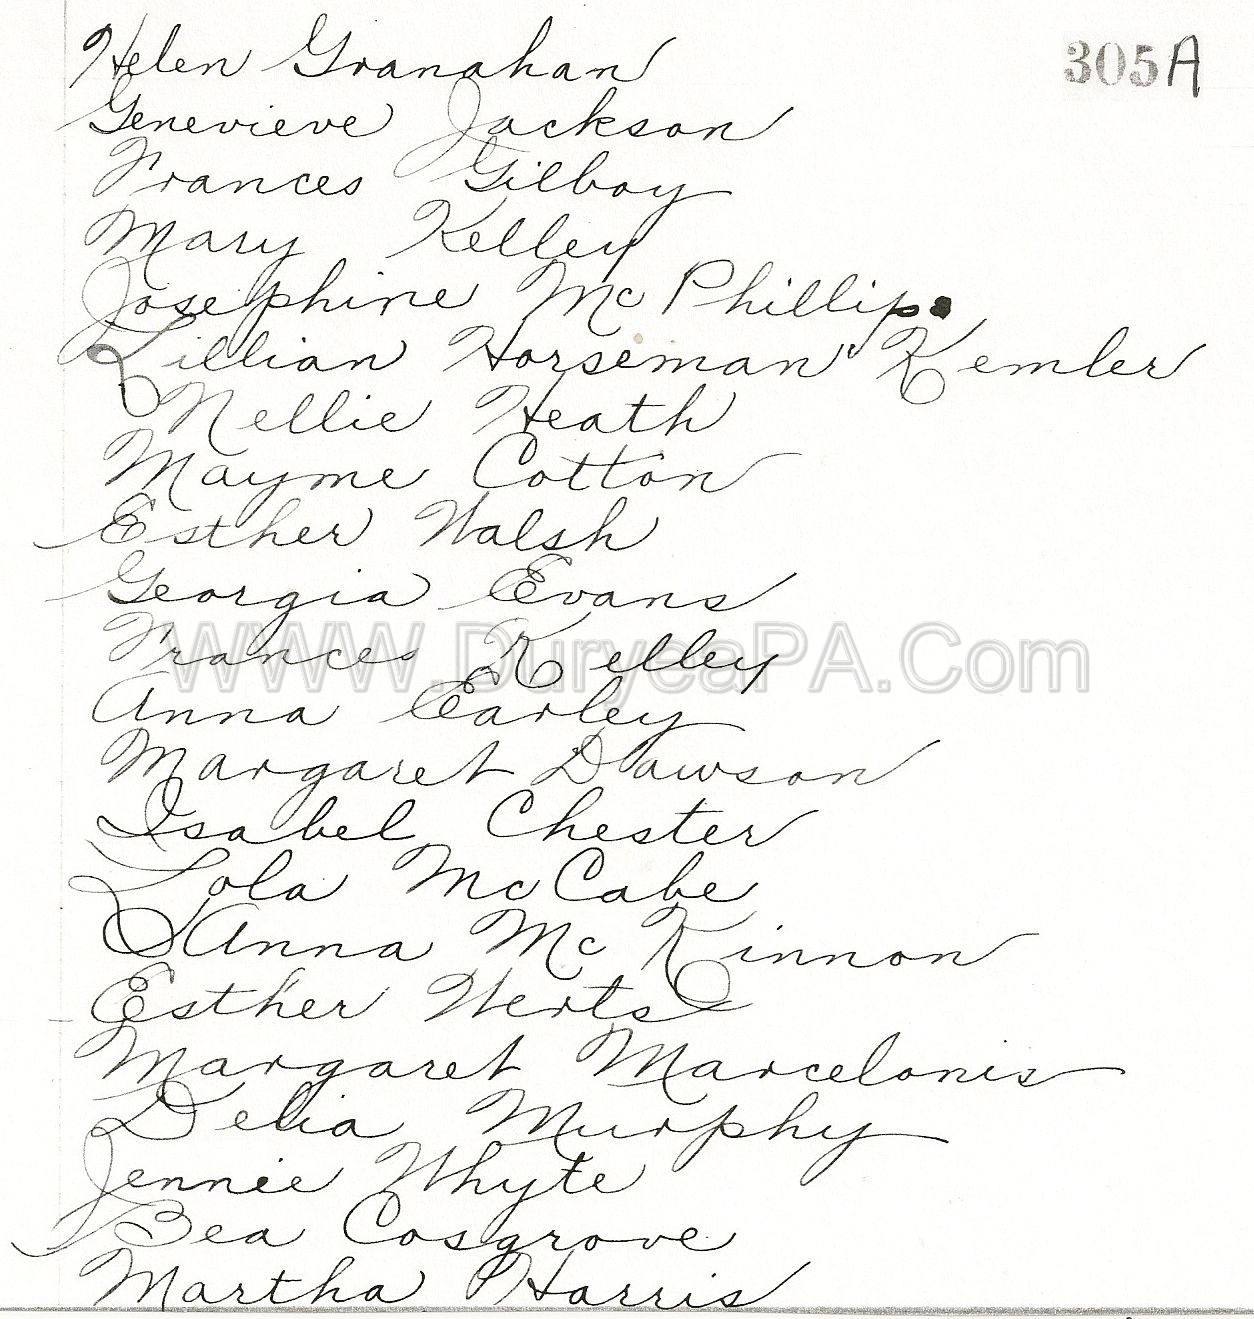 305A
Helen Granahan
Genevieve Jackson
Frances Gilboy
Mary Kelley
Josephine McPhillips
Lillian Horseman" Kemler
Nellie Heath
Mayme Cotton
Esther Walsh
Georgia Evans
Frances Kelley
WWW.DuryeaPA.Com
Anna Earley
Margaret Dawson
Isabel Chester
Lola McCabe
Anna McKinnon
Esther Werts
Margaret Marcelonis
Delia Murphy
Jennie Whyte
Bea Cosgrove
Martha Harris